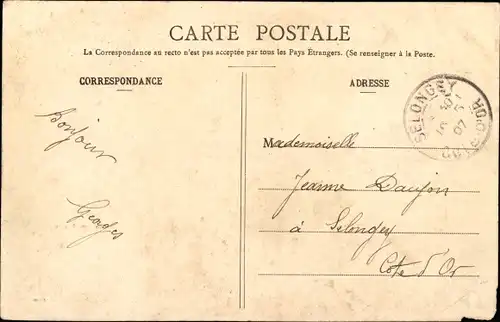 CARTE POSTALE
La Correspondance au recto n'est pas acceptée par tous les Pays Etrangers. (Se renseigner à la Poste.
CORRESPONDANCE
ADRESSE
SELONGEY
07
CÔTE-D'OR
Bonjour
Georges
Mademoiselle
Jeanne Daujon
à Selongey
Côte d'Or